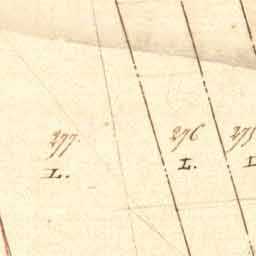 277. 276 275
L. L. L